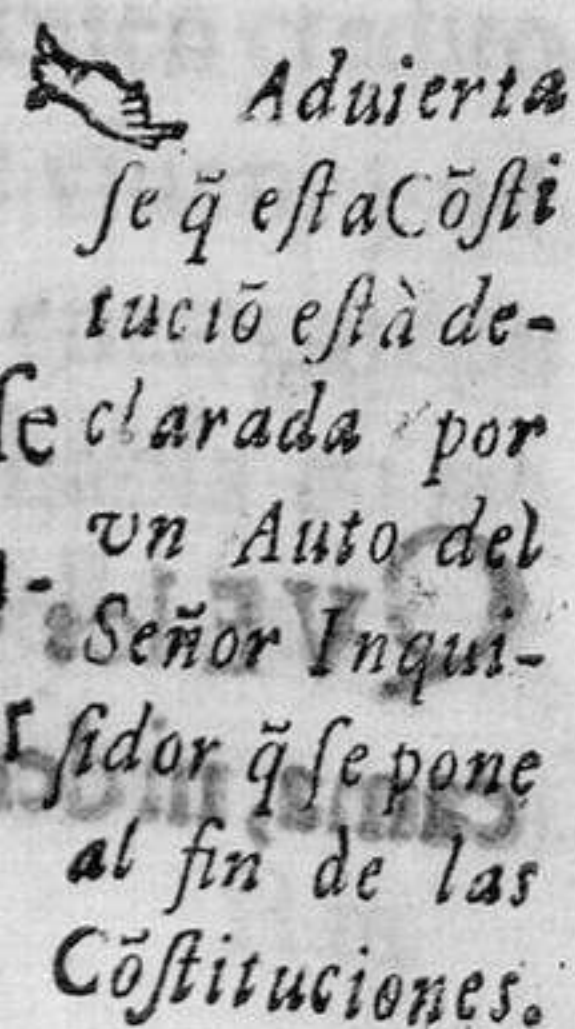 ☞ Aduierta
ſe q̃ eſta Cõſti
tuciõ eſtà de-
clarada por
vn Auto del
Señor Inqui-
ſidor q̃ ſe pone
al fin de las
Cõſtituciones.